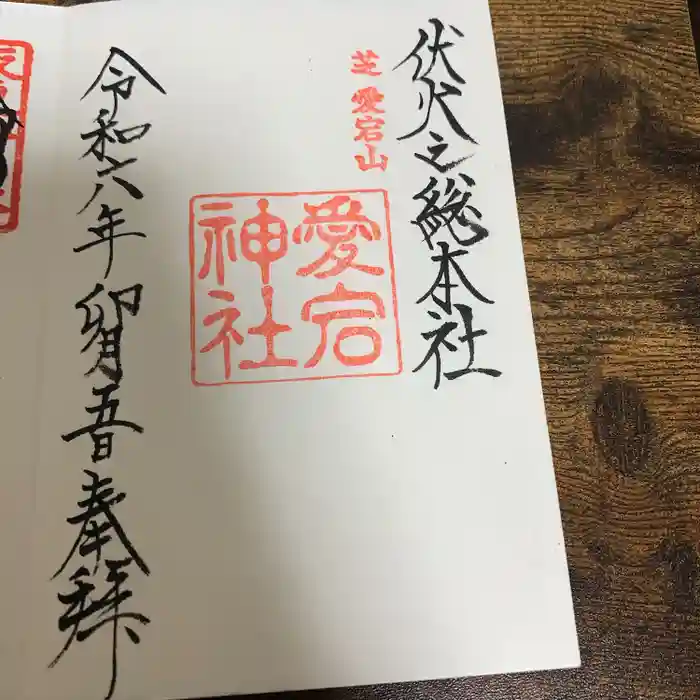 伏火之総本社
芝 愛宕山
愛宕
神社
令和六年卯月五日奉拝